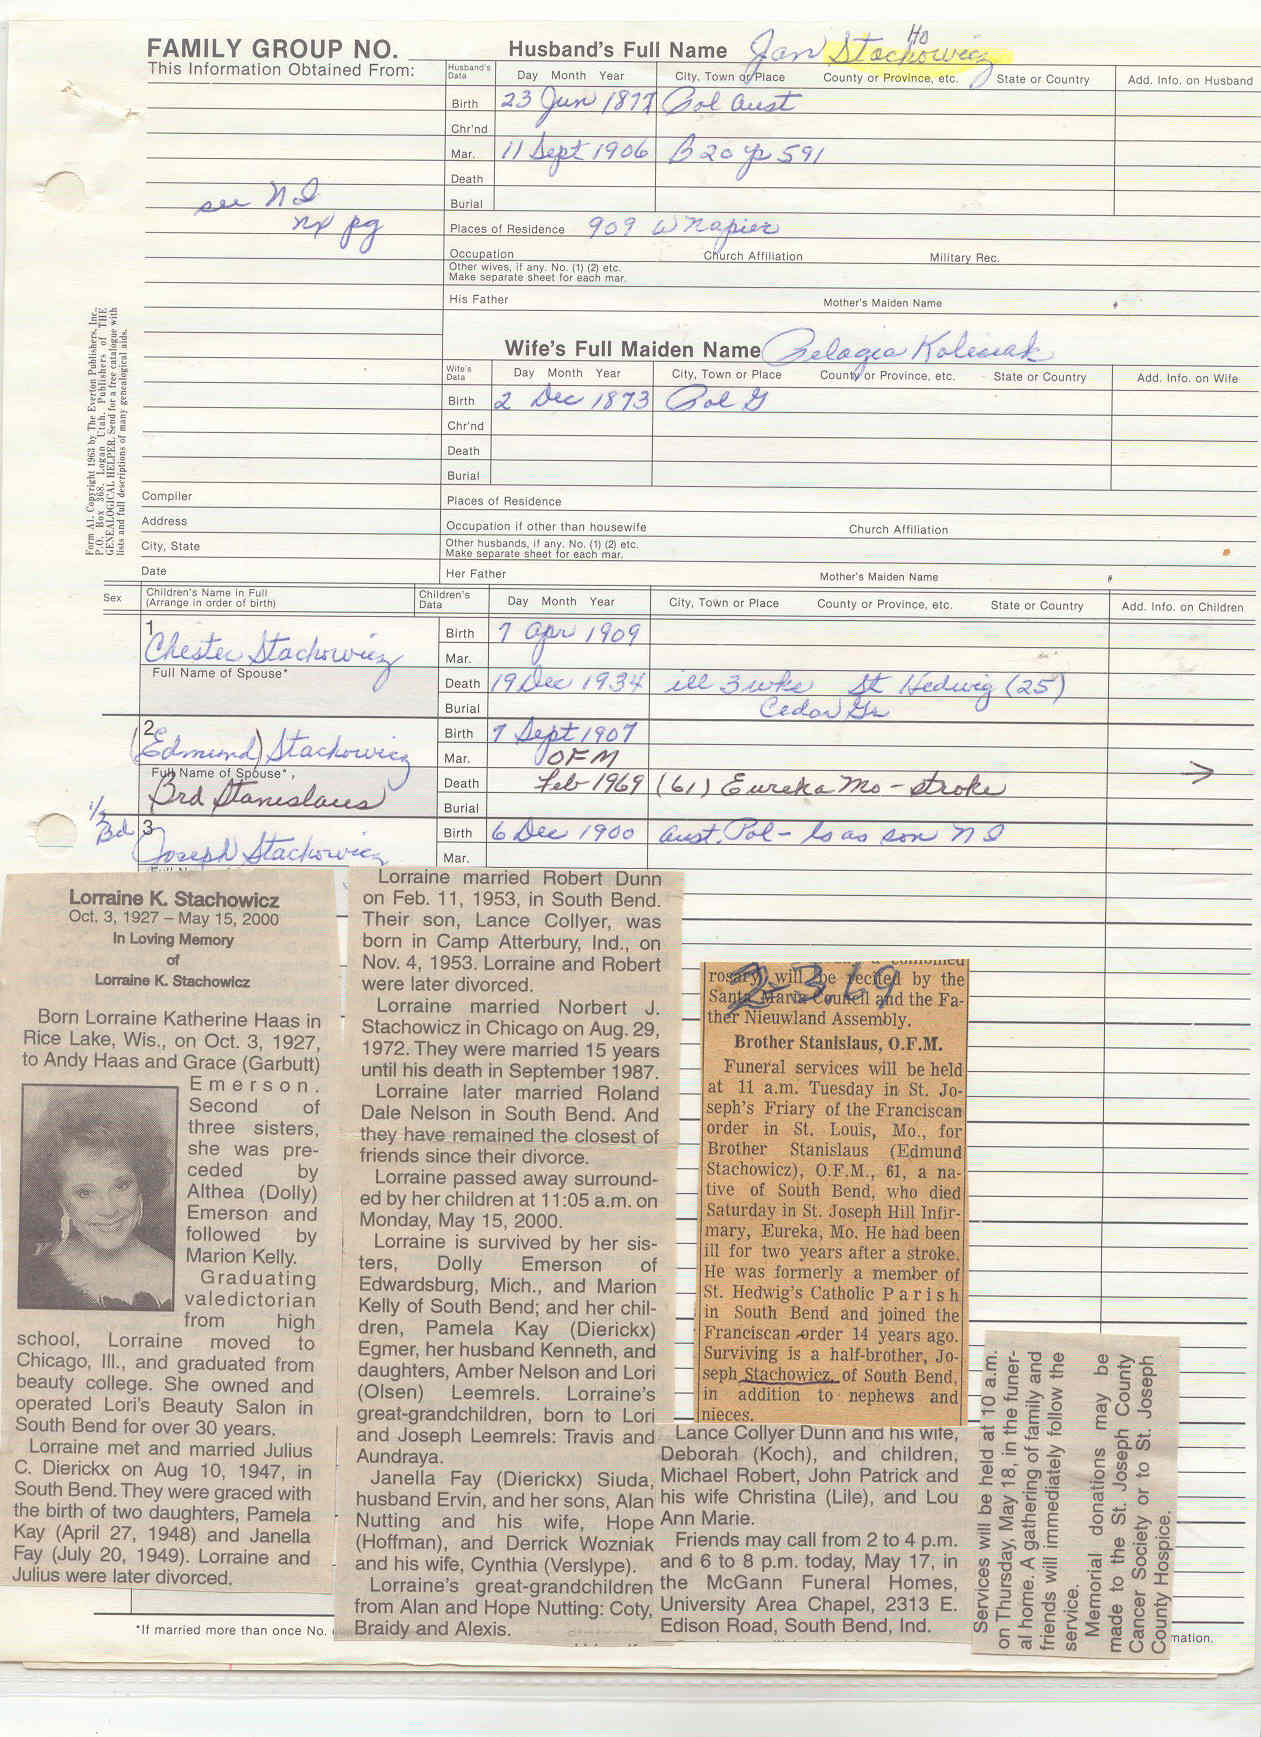 FAMILY GROUP NO.
This Information Obtained From:
see N I
nx pg
Husband's Full Name Jan Stachowicz
Ho
Husband's Data Day Month Year City, Town or Place County or Province, etc. State or Country Add. Info. on Husband
Birth 23 Jun 1877 Pol Aust
Chr'nd
Mar. 11 Sept 1906 B 20 p 591
Death
Burial
Places of Residence 909 W Napier
Occupation Church Affiliation Military Rec.
Other wives, if any. No. (1) (2) etc.
Make separate sheet for each mar.
His Father Mother's Maiden Name
Form A1. Copyright 1963 by The Everton Publishers, Inc.,
P.O. Box 368, Logan Utah. Publishers of THE
GENEALOGICAL HELPER. Send for a free catalogue with
lists and full descriptions of many genealogical aids.
Wife's Full Maiden Name Pelagia Kolesiak
Wife's Data Day Month Year City, Town or Place County or Province, etc. State or Country Add. Info. on Wife
Birth 2 Dec 1873 Pol G
Chr'nd
Death
Burial
Compiler
Address
City, State
Date
Places of Residence
Occupation if other than housewife Church Affiliation
Other husbands, if any. No. (1) (2) etc.
Make separate sheet for each mar.
Her Father Mother's Maiden Name
Sex Children's Name in Full
(Arrange in order of birth)
Children's Data Day Month Year City, Town or Place County or Province, etc. State or Country Add. Info. on Children
1
Chester Stachowicz
Full Name of Spouse*
Birth 7 Apr 1909
Mar.
Death 19 Dec 1934 ill 3 wks St Hedwig (25)
Burial Cedar Gr
2
(Edmund) Stachowicz
Full Name of Spouse*
Brd Stanislaus
Birth 7 Sept 1907
Mar. OFM
Death Feb 1969 (61) Eureka Mo - stroke
Burial
1/2 Bd
3
Joseph Stachowicz
Birth 6 Dec 1900 Aust. Pol - ls as son N I
Mar.
Lorraine K. Stachowicz
Oct. 3, 1927 – May 15, 2000
In Loving Memory
of
Lorraine K. Stachowicz
Born Lorraine Katherine Haas in
Rice Lake, Wis., on Oct. 3, 1927,
to Andy Haas and Grace (Garbutt)
Emerson.
Second of
three sisters,
she was pre-
ceded by
Althea (Dolly)
Emerson and
followed by
Marion Kelly.
Graduating
valedictorian
from high
school, Lorraine moved to
Chicago, Ill., and graduated from
beauty college. She owned and
operated Lori's Beauty Salon in
South Bend for over 30 years.
Lorraine met and married Julius
C. Dierickx on Aug 10, 1947, in
South Bend. They were graced with
the birth of two daughters, Pamela
Kay (April 27, 1948) and Janella
Fay (July 20, 1949). Lorraine and
Julius were later divorced.
Lorraine married Robert Dunn
on Feb. 11, 1953, in South Bend.
Their son, Lance Collyer, was
born in Camp Atterbury, Ind., on
Nov. 4, 1953. Lorraine and Robert
were later divorced.
Lorraine married Norbert J.
Stachowicz in Chicago on Aug. 29,
1972. They were married 15 years
until his death in September 1987.
Lorraine later married Roland
Dale Nelson in South Bend. And
they have remained the closest of
friends since their divorce.
Lorraine passed away surround-
ed by her children at 11:05 a.m. on
Monday, May 15, 2000.
Lorraine is survived by her sis-
ters, Dolly Emerson of
Edwardsburg, Mich., and Marion
Kelly of South Bend; and her chil-
dren, Pamela Kay (Dierickx)
Egmer, her husband Kenneth, and
daughters, Amber Nelson and Lori
(Olsen) Leemrels. Lorraine's
great-grandchildren, born to Lori
and Joseph Leemrels: Travis and
Aundraya.
Janella Fay (Dierickx) Siuda,
husband Ervin, and her sons, Alan
Nutting and his wife, Hope
(Hoffman), and Derrick Wozniak
and his wife, Cynthia (Verslype).
Lorraine's great-grandchildren
from Alan and Hope Nutting: Coty,
Braidy and Alexis.
combined
rosary, will be recited by the
Santa Maria Council and the Fa-
ther Nieuwland Assembly.
2-3 69
Brother Stanislaus, O.F.M.
Funeral services will be held
at 11 a.m. Tuesday in St. Jo-
seph's Friary of the Franciscan
order in St. Louis, Mo., for
Brother Stanislaus (Edmund
Stachowicz), O.F.M., 61, a na-
tive of South Bend, who died
Saturday in St. Joseph Hill Infir-
mary, Eureka, Mo. He had been
ill for two years after a stroke.
He was formerly a member of
St. Hedwig's Catholic Parish
in South Bend and joined the
Franciscan order 14 years ago.
Surviving is a half-brother, Jo-
seph Stachowicz, of South Bend,
in addition to nephews and
nieces.
Lance Collyer Dunn and his wife,
Deborah (Koch), and children,
Michael Robert, John Patrick and
his wife Christina (Lile), and Lou
Ann Marie.
Friends may call from 2 to 4 p.m.
and 6 to 8 p.m. today, May 17, in
the McGann Funeral Homes,
University Area Chapel, 2313 E.
Edison Road, South Bend, Ind.
Services will be held at 10 a.m.
on Thursday, May 18, in the funer-
al home. A gathering of family and
friends will immediately follow the
service.
Memorial donations may be
made to the St. Joseph County
Cancer Society or to St. Joseph
County Hospice.
*If married more than once No.